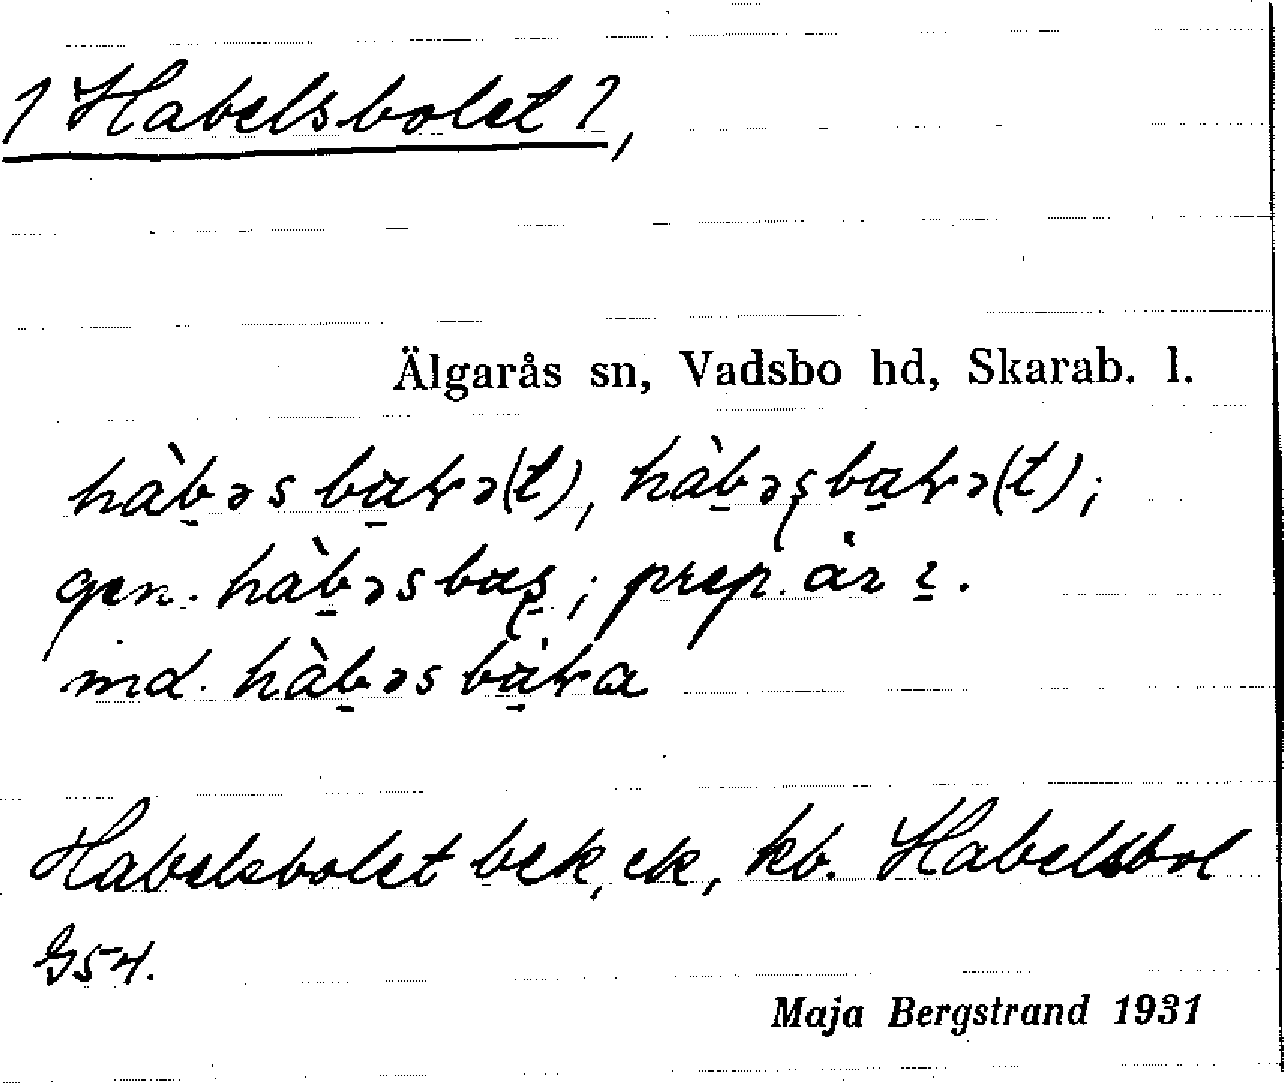 1 Habelsbolet 2,
Älgarås sn, Vadsbo hd, Skarab. l.
hàb̠əsba̠ɫə(t), hàb̠əʂba̠ɫə(t);
gen. hàb̠əsbaʂ̠; prep. år ɩ̠.
ind. hàb̠əsbà̠ɫa
Habelsbolet bek, ek, kb. Habelsbol
G54.
Maja Bergstrand 1931